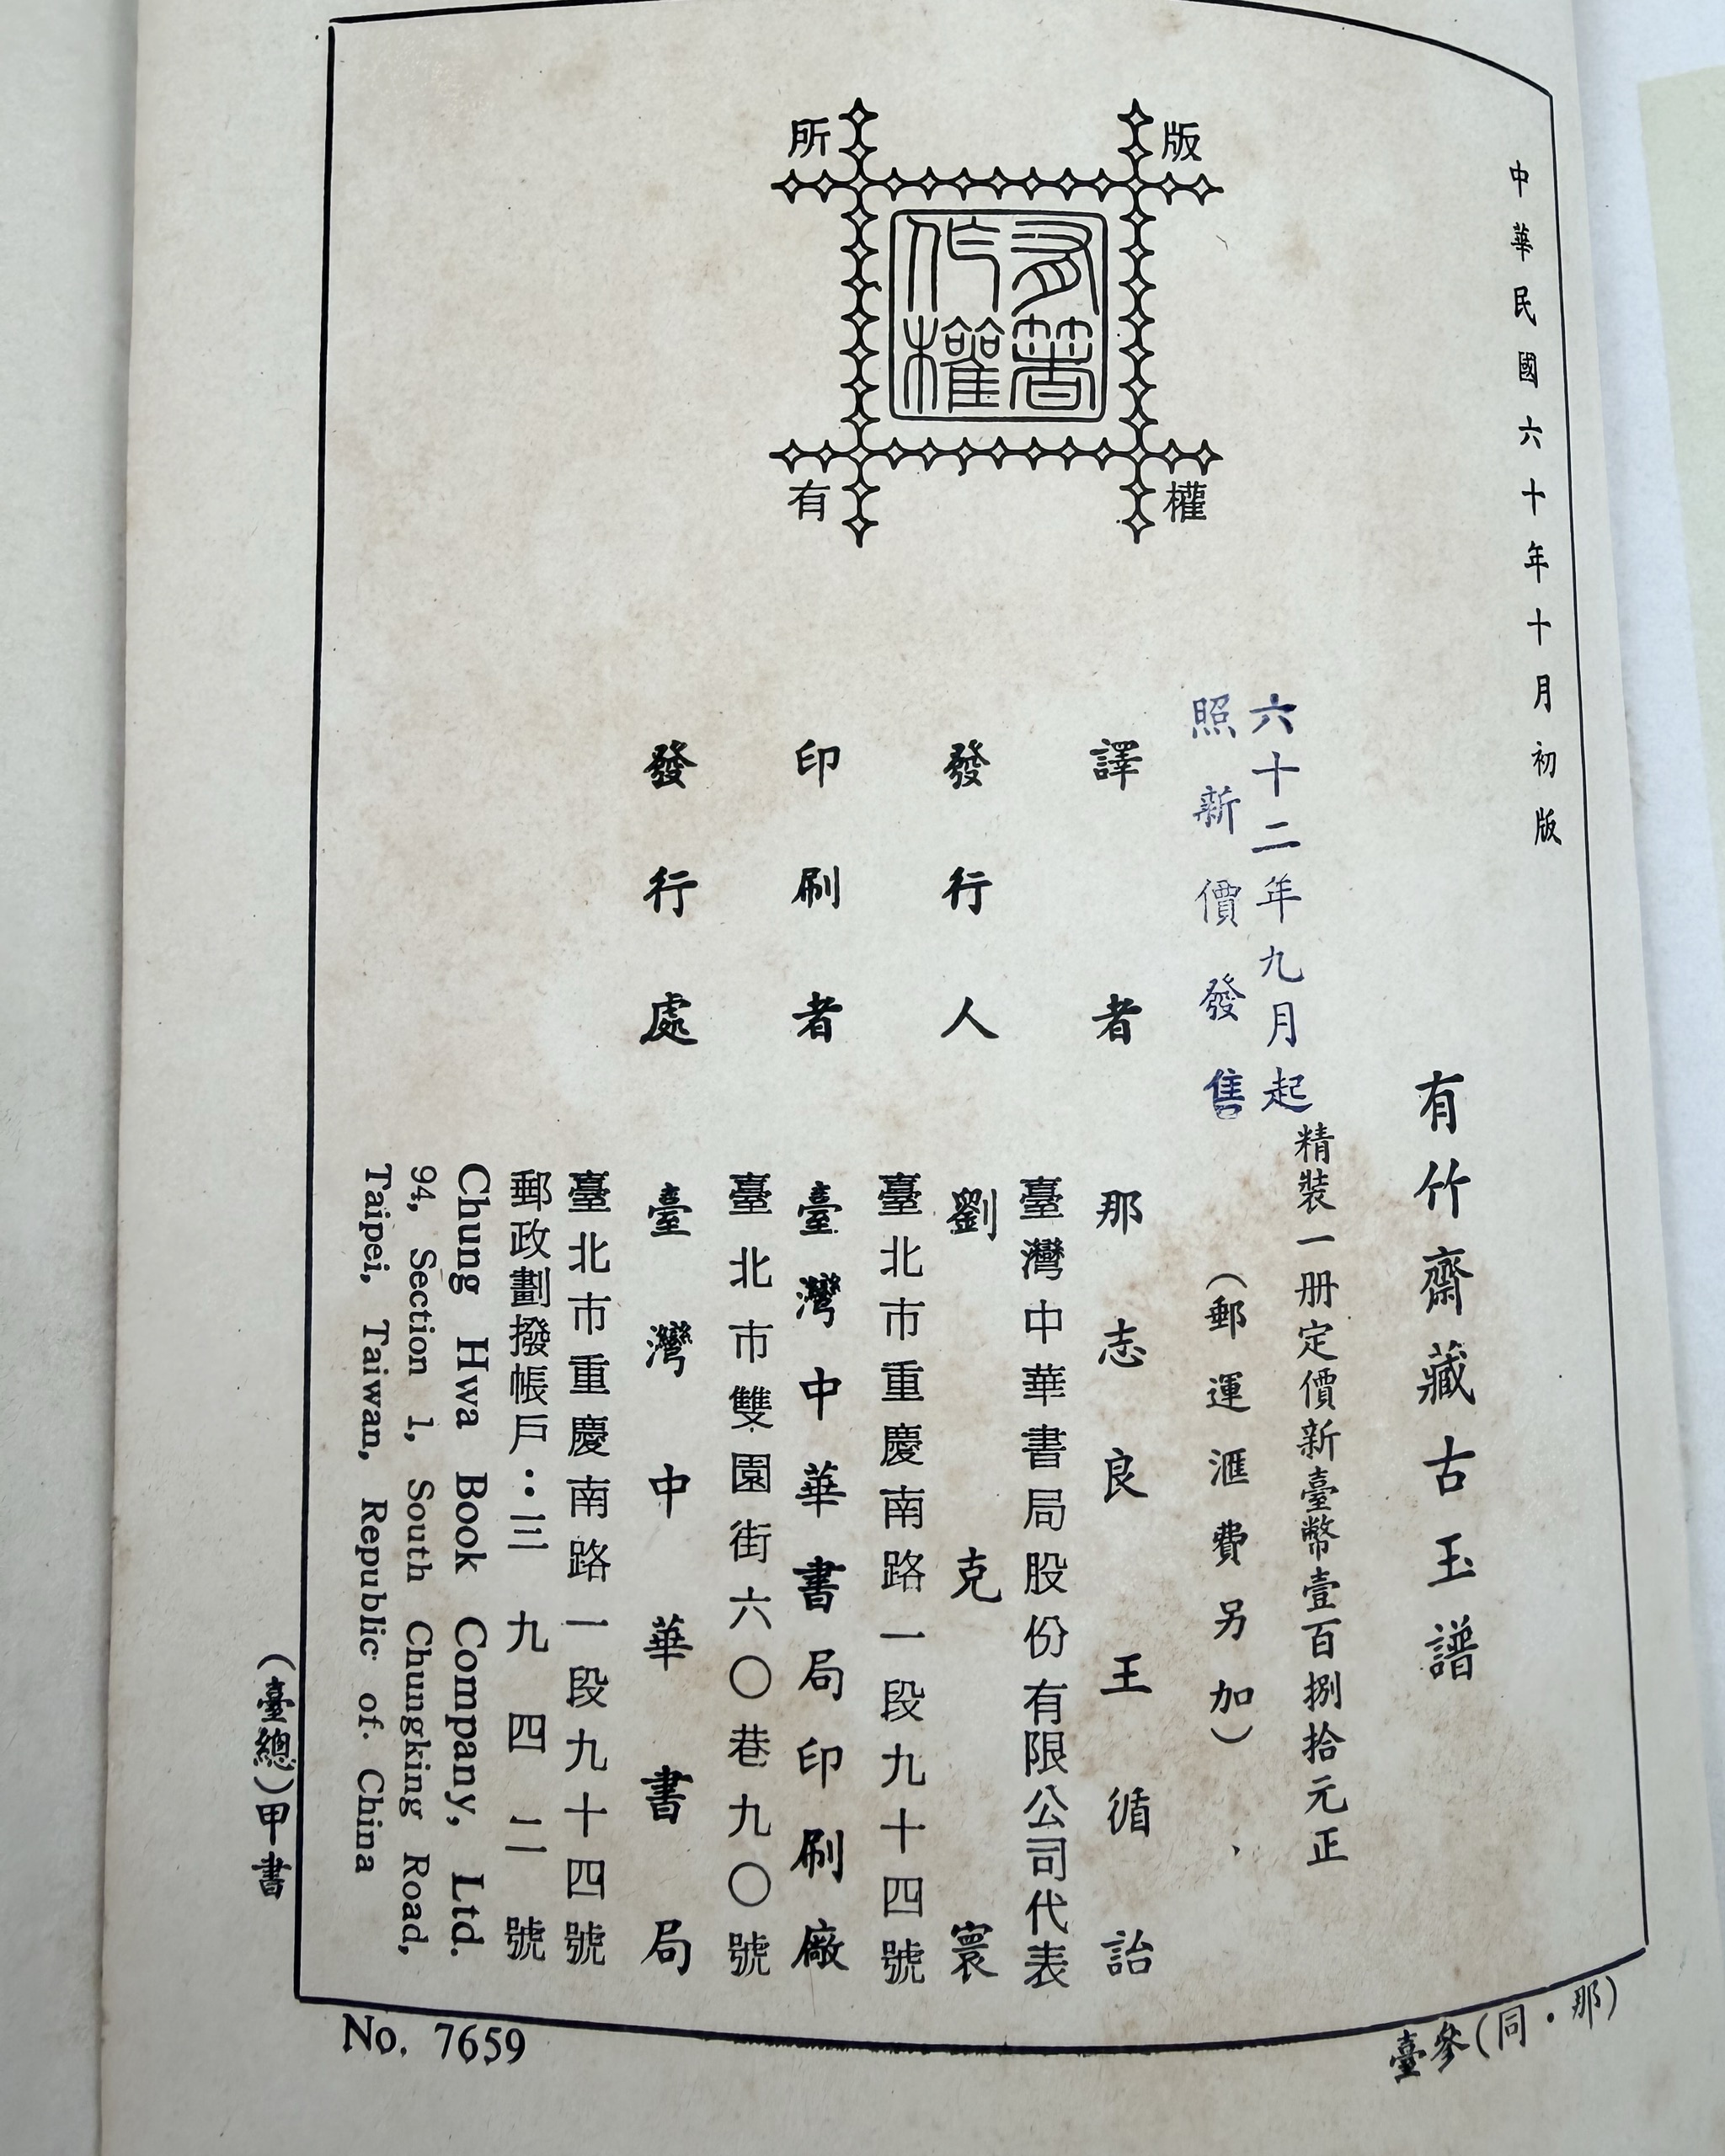 中華民國六十年十月初版
有竹齋藏古玉譜
精裝一册定價新臺幣壹百捌拾元正
（郵運滙費另加）
六十二年九月起
照新價發售
版權所有
有著作權
譯者 那志良 王循詒
臺灣中華書局股份有限公司代表
發行人 劉克寰
臺北市重慶南路一段九十四號
印刷者 臺灣中華書局印刷廠
臺北市雙園街六〇巷九〇號
發行處 臺灣中華書局
臺北市重慶南路一段九十四號
郵政劃撥帳戶：三九四二號
Chung Hwa Book Company, Ltd.
94, Section 1, South Chungking Road,
Taipei, Taiwan, Republic of China
（臺總）甲書
No. 7659
臺參（同·那）